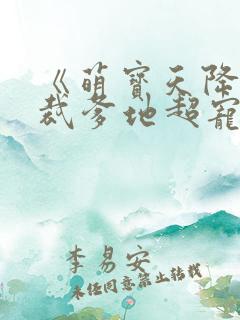 《萌寶天降
裁爹地超寵
李易安
未經同意禁止轉載